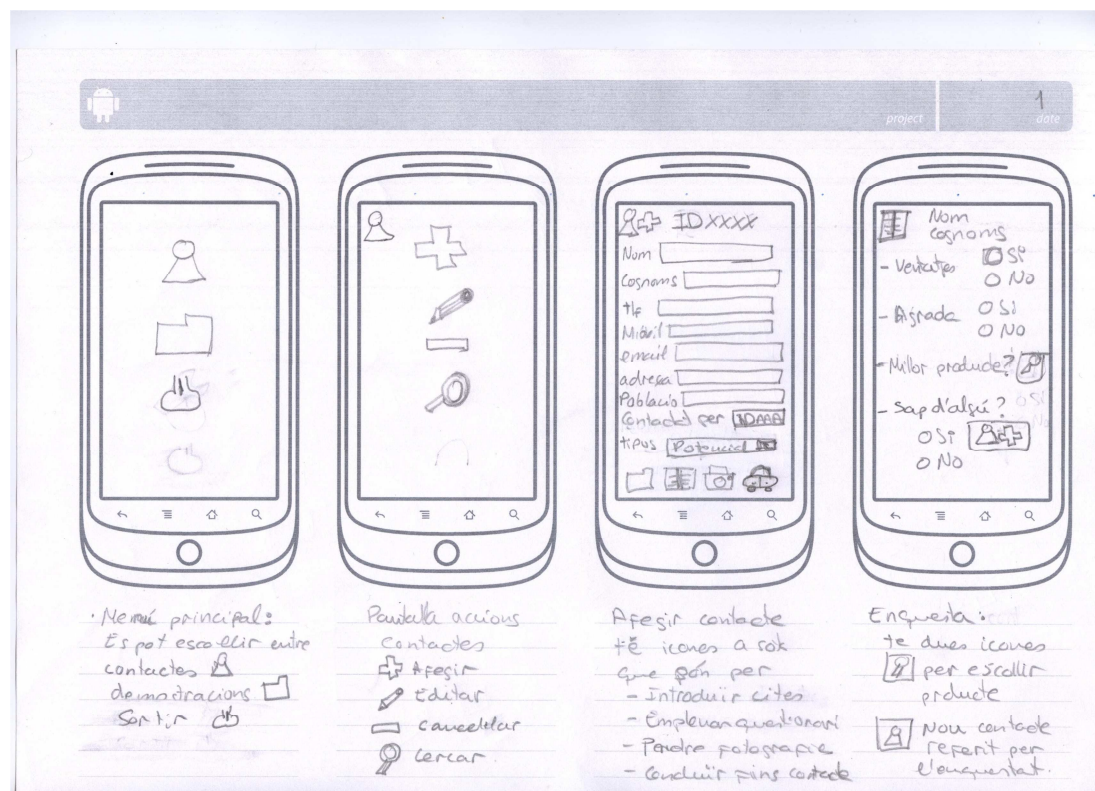 1
project
date
ID XXXX
Nom
Cognoms
tlf
Mòbil
email
adresa
Població
Contactat per IDAAA
tipus Potencial
Nom
cognoms
- Ventatjes
Si
No
- Agrada
Si
No
- Millor producte?
- Sap d'algú?
Si
No
Si
No
· Menú principal:
Es pot escollir entre
contactes
demostracions
Sortir
Pantalla accions
contactes
Afegir
Editar
Cancel·lar
Cercar
Afegir contacte
té icones a sota
que són per
- Introduir cites
- Emplenar questionari
- Pendre fotografia
- Conduir fins contacte
Enquesta:
te dues icones
per escollir
producte
Nou contacte
referit per
l'enquestat.